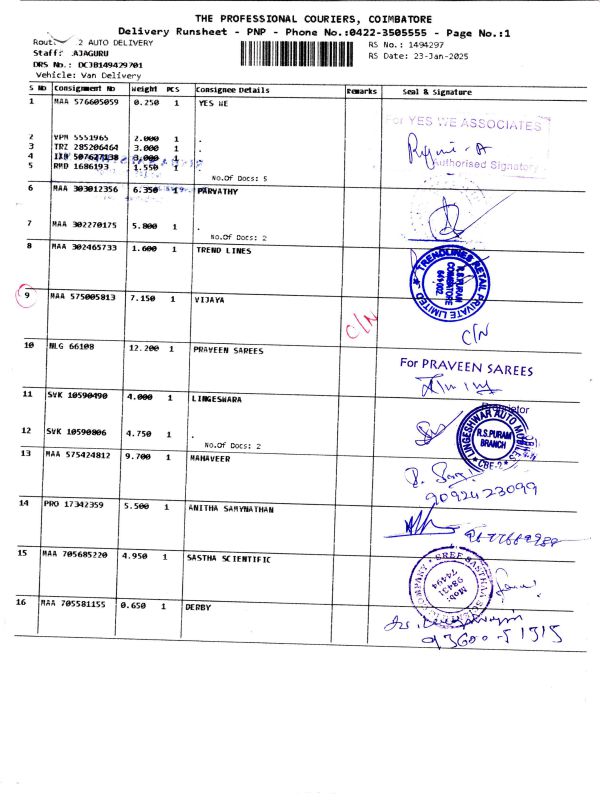 THE PROFESSIONAL COURIERS, COIMBATORE
Delivery Runsheet - PNP - Phone No.:0422-3505555 - Page No.:1
Route: 2 AUTO DELIVERY
RS No.: 1494297
Staff: AJAGURU
RS Date: 23-Jan-2025
DRS No.: DCJB149429701
Vehicle: Van Delivery
S No Consignment No Weight PCS Consignee Details Remarks Seal & Signature
1 MAA 576605059 0.250 1 YES WE
For YES WE ASSOCIATES
Authorised Signatory
2 VPM 5551965 2.000 1 .
3 TRZ 285206464 3.000 1 .
4 507627138 3.000 1 .
5 RMD 1686193 1.550 1 .
No.Of Docs: 5
6 MAA 303012356 6.350 1 PARVATHY
7 MAA 302270175 5.800 1 .
No.Of Docs: 2
8 MAA 302465733 1.600 1 TREND LINES
TRENDLINES RETAIL PRIVATE LIMITED
R.S.PURAM
COIMBATORE
641 002.
9 MAA 575005813 7.150 1 VIJAYA
C/N
C/N
10 NLG 66108 12.200 1 PRAVEEN SAREES
For PRAVEEN SAREES
Proprietor
11 SVK 10590490 4.000 1 LINGESWARA
LINGESHWAR AUTO MOBILES
R.S.PURAM
BRANCH
CBE-2
12 SVK 10590806 4.750 1 .
No.Of Docs: 2
13 MAA 575424812 9.700 1 MAHAVEER
9092423099
14 PRO 17342359 5.500 1 ANITHA SAMYNATHAN
15 MAA 705685220 4.950 1 SASTHA SCIENTIFIC
SREE SASTHAA
COMPANY
Mob:
98431
74494
16 MAA 705581155 0.650 1 DERBY
93600-51315